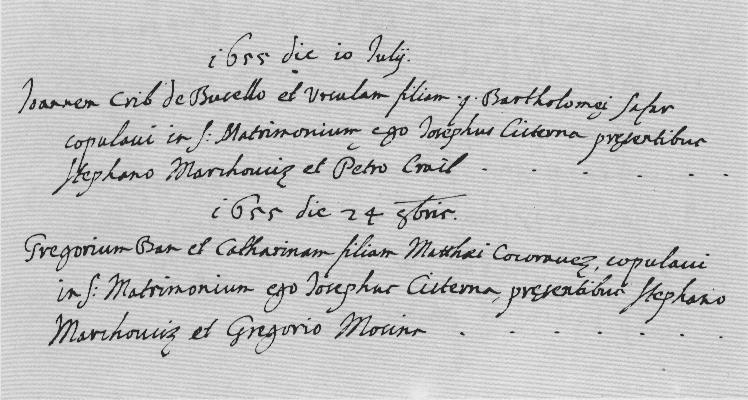 1655 die 10 Julij.
Joannem Crib de Bucello et Ursulam filiam q. Bartholomęi Safar
copulavi in S: Matrimonium ego Josephus Cisterna pręsentibus
Stephano Marchoviz et Petro Crail . . . . . .
1655 die 24 8bris.
Gregorium Ban et Catharinam filiam Matthæi Cocoravez, copulavi
in S: Matrimonium ego Josephus Cisterna, pręsentibus Stephano
Marchoviz et Gregorio Mocina . . . . . . .